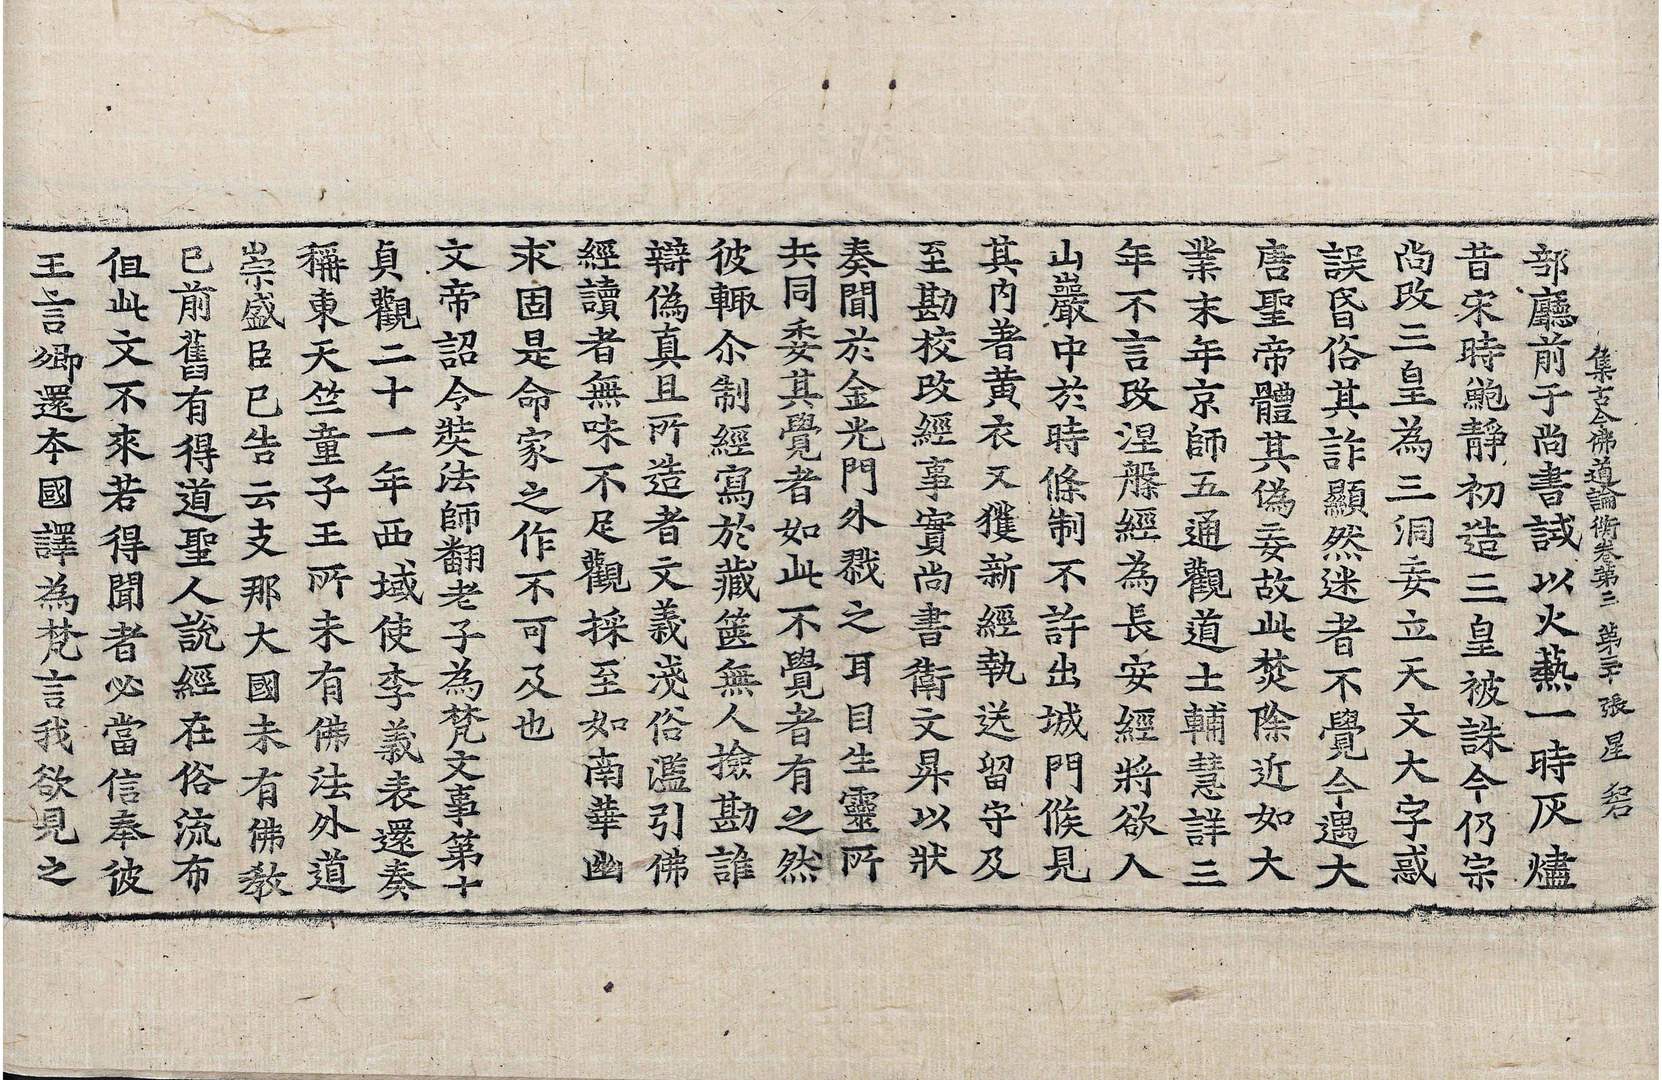 集古今佛道論衡卷第三　第三十張　星
部廳前于尚書試以火爇一時灰燼
昔宋時鮑靜初造三皇被誅今仍宗
尚改三皇為三洞妄立天文大字惑
誤昏俗其詐顯然迷者不覺今遇大
唐聖帝體其偽妄故此焚除近如大
業末年京師五通觀道士輔慧詳三
年不言改涅槃經為長安經將欲入
山巖中於時條制不許出城門候見
其內著黃衣又獲新經執送留守及
至勘挍改經事實尚書衛文昇以狀
奏聞於金光門外戮之耳目生靈所
共同委其覺者如此不覺者有之然
彼輙尒制經寫於藏篋無人撿勘誰
辯偽真且所造者文義淺俗濫引佛
經讀者無味不足觀採至如南華幽
求固是命家之作不可及也
文帝詔令奘法師翻老子為梵文事第十
貞觀二十一年西域使李義表還奏
稱東天竺童子王所未有佛法外道
崇盛臣已告云支那大國未有佛教
已前舊有得道聖人說經在俗流布
但此文不來若得聞者必當信奉彼
王言卿還本國譯為梵言我欲見之